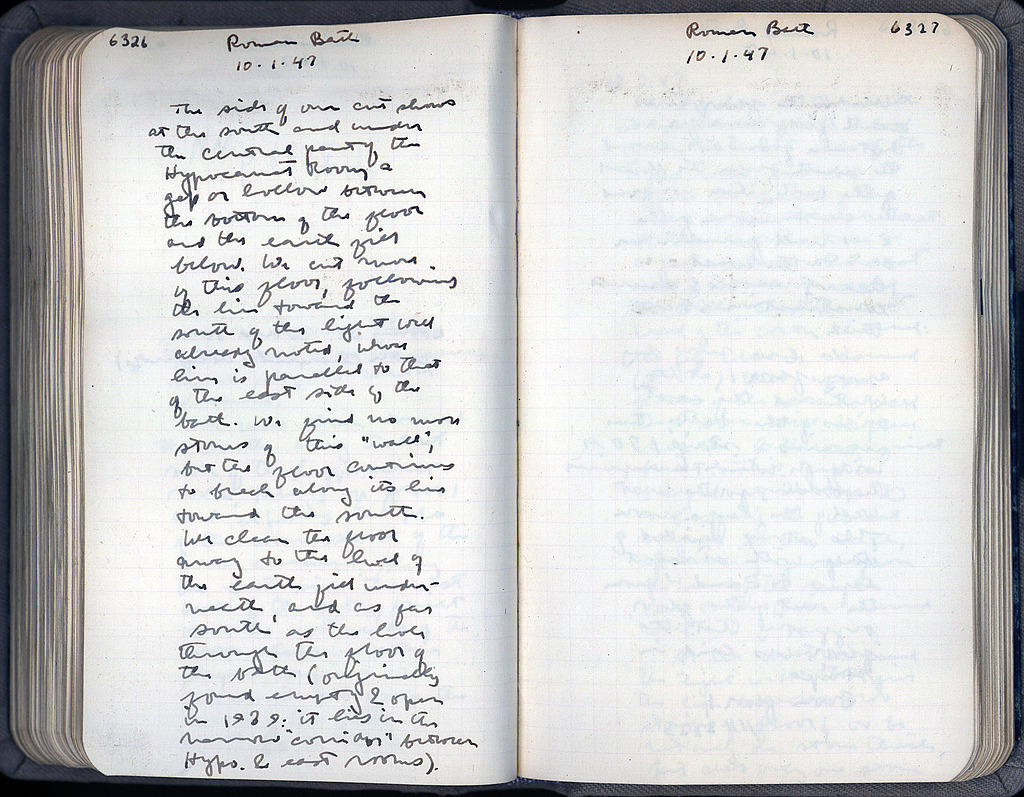 6326
Roman Bath
10.1.47
The side of our cut shows
at the south and under
the central part of the
Hypocaust Room a
gap or hollow between
the bottom of the floor
and the earth fill
below. We cut more
of this floor, following
the line toward the
south of the light wall
already noted, whose
line is parallel to that
of the east side of the
bath. We find no more
stones of this "wall",
but the floor continues
to break along its line
toward the south.
We clean the floor
away to the level of
the earth fill under-
neath, and as far
south as the hole
through the floor of
the bath (originally
found empty & open
in 1939: it lies in the
narrow "corridor" between
Hypo. & east rooms).
Roman Bath
6327
10.1.47